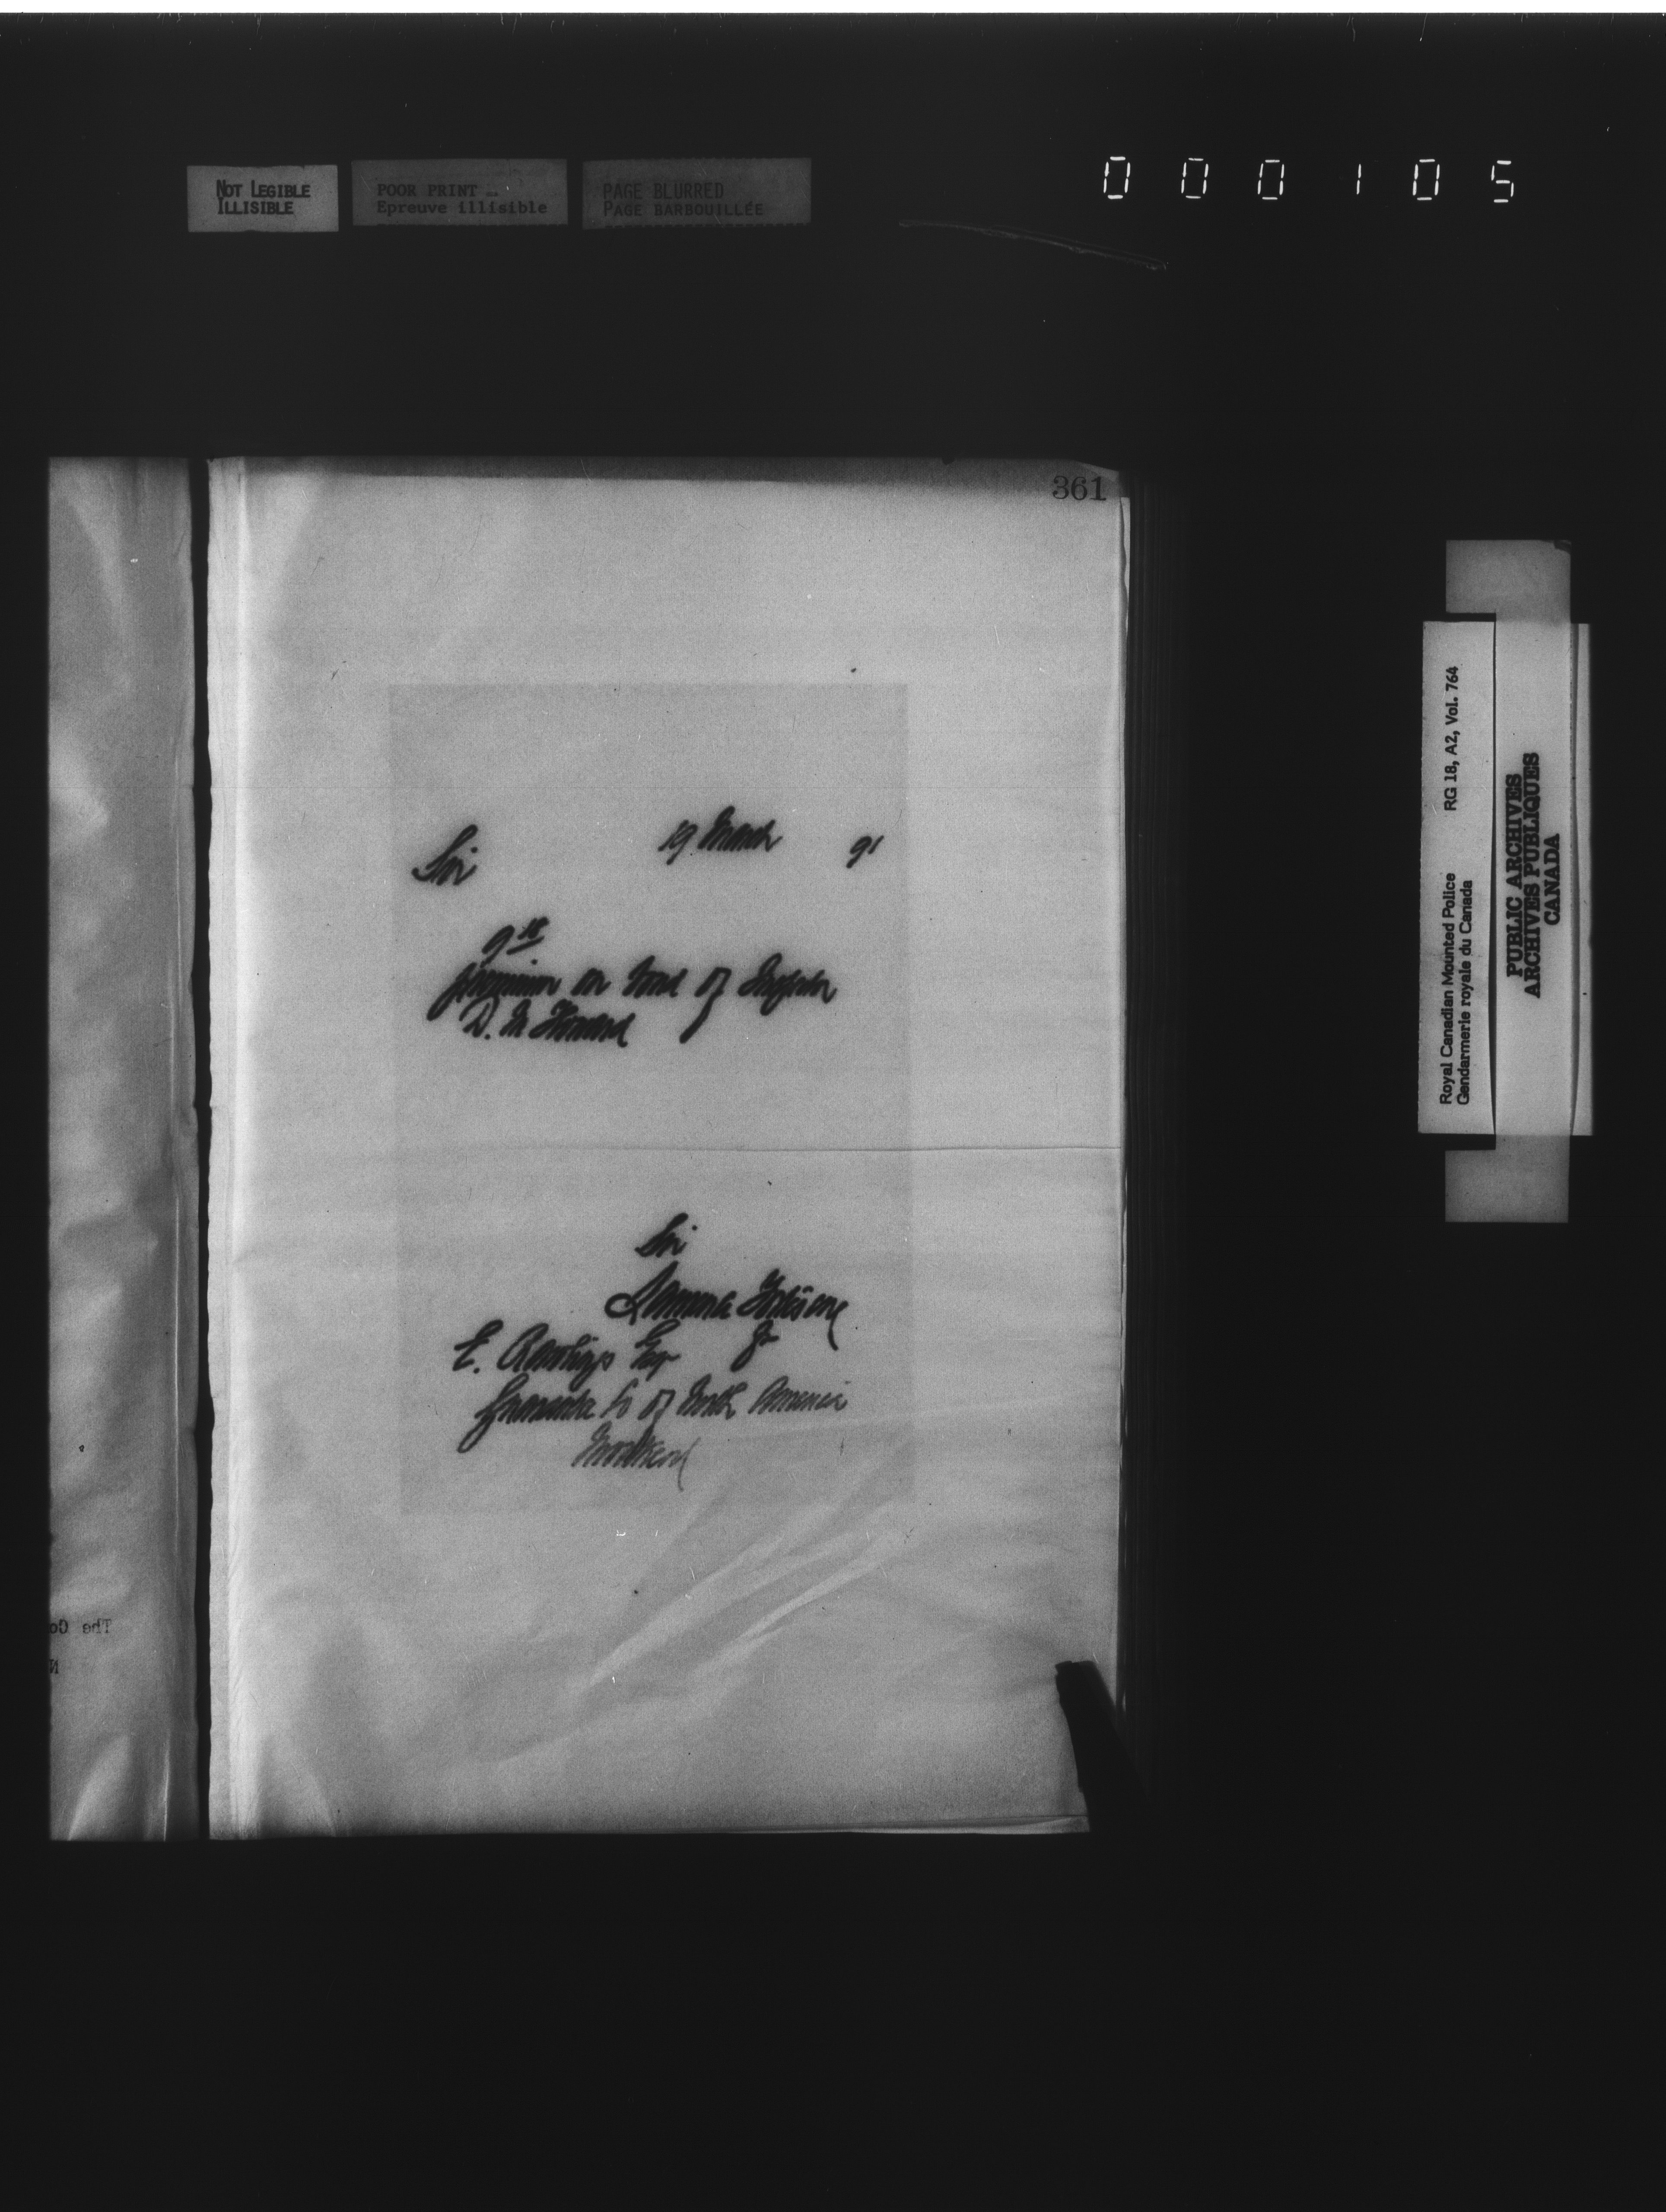 NOT LEGIBLE
ILLISIBLE
POOR PRINT
Epreuve illisible
PAGE BLURRED
PAGE BARBOUILLÉE
000105
361
19 March 91
Sir
9 18
premium on bond of Inspector
D. M Howard
Sir
Laurence Fortescue
E. Rawlings Esq
Guarantee Co of North America
Montreal
The Co
Royal Canadian Mounted Police RG 18, A2, Vol. 764
Gendarmerie royale du Canada
PUBLIC ARCHIVES
ARCHIVES PUBLIQUES
CANADA